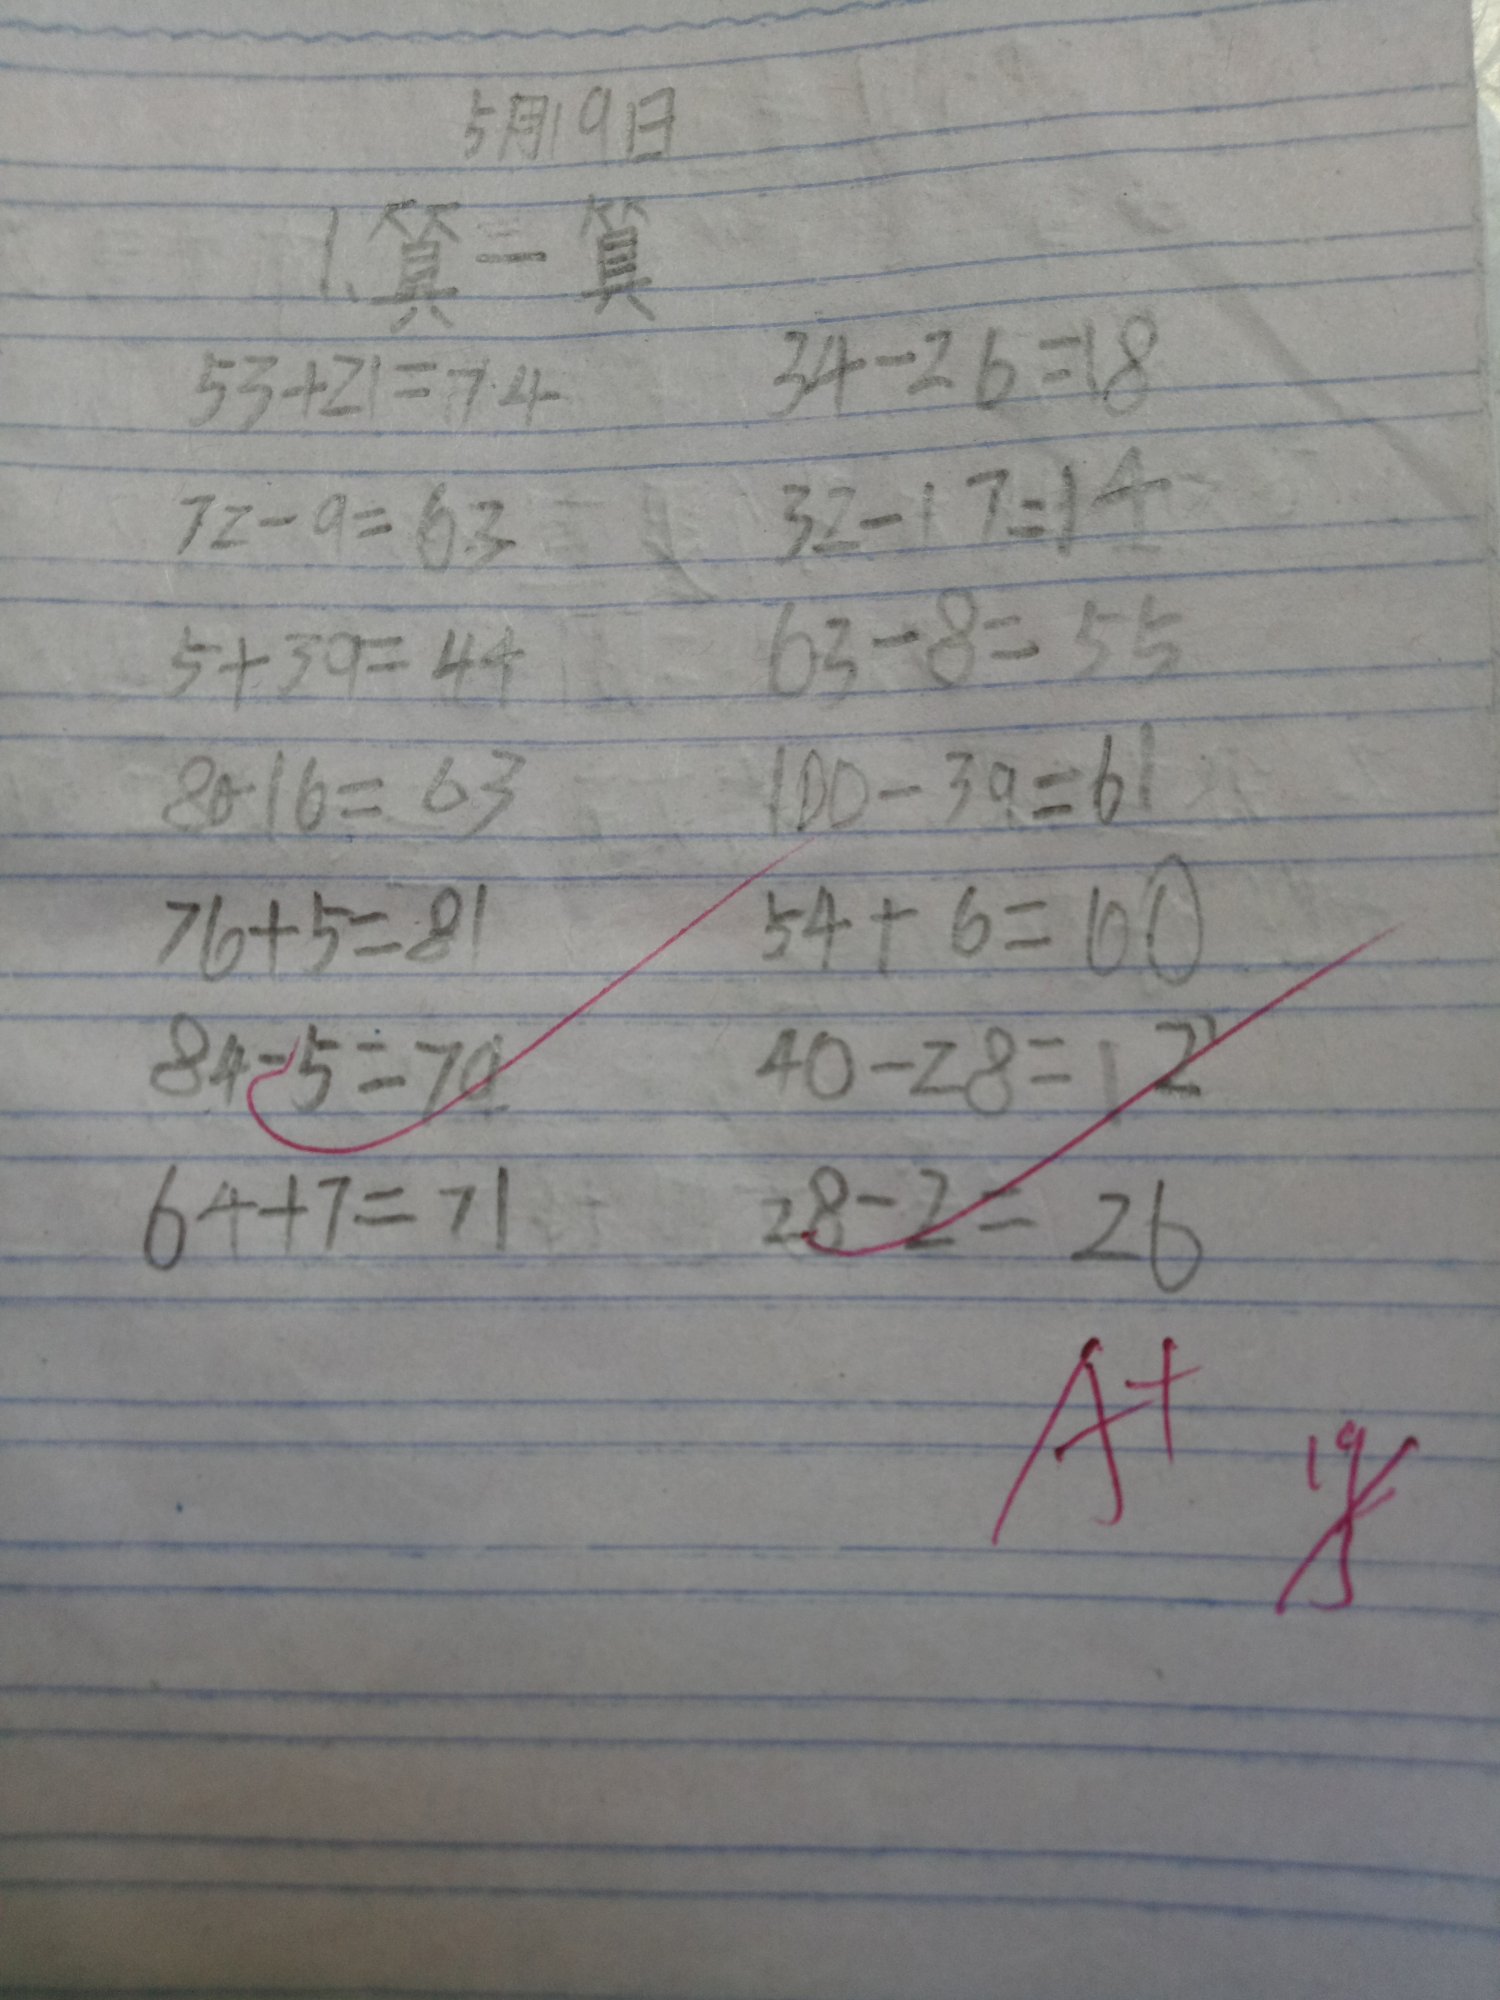 5月19日
1、算一算
53+21=74 34-26=18
72-9=63 32-17=14
5+39=44 63-8=55
80-16=63 100-39=61
76+5=81 54+6=60
84-5=79 40-28=12
64+7=71 28-2=26
A+
19/5